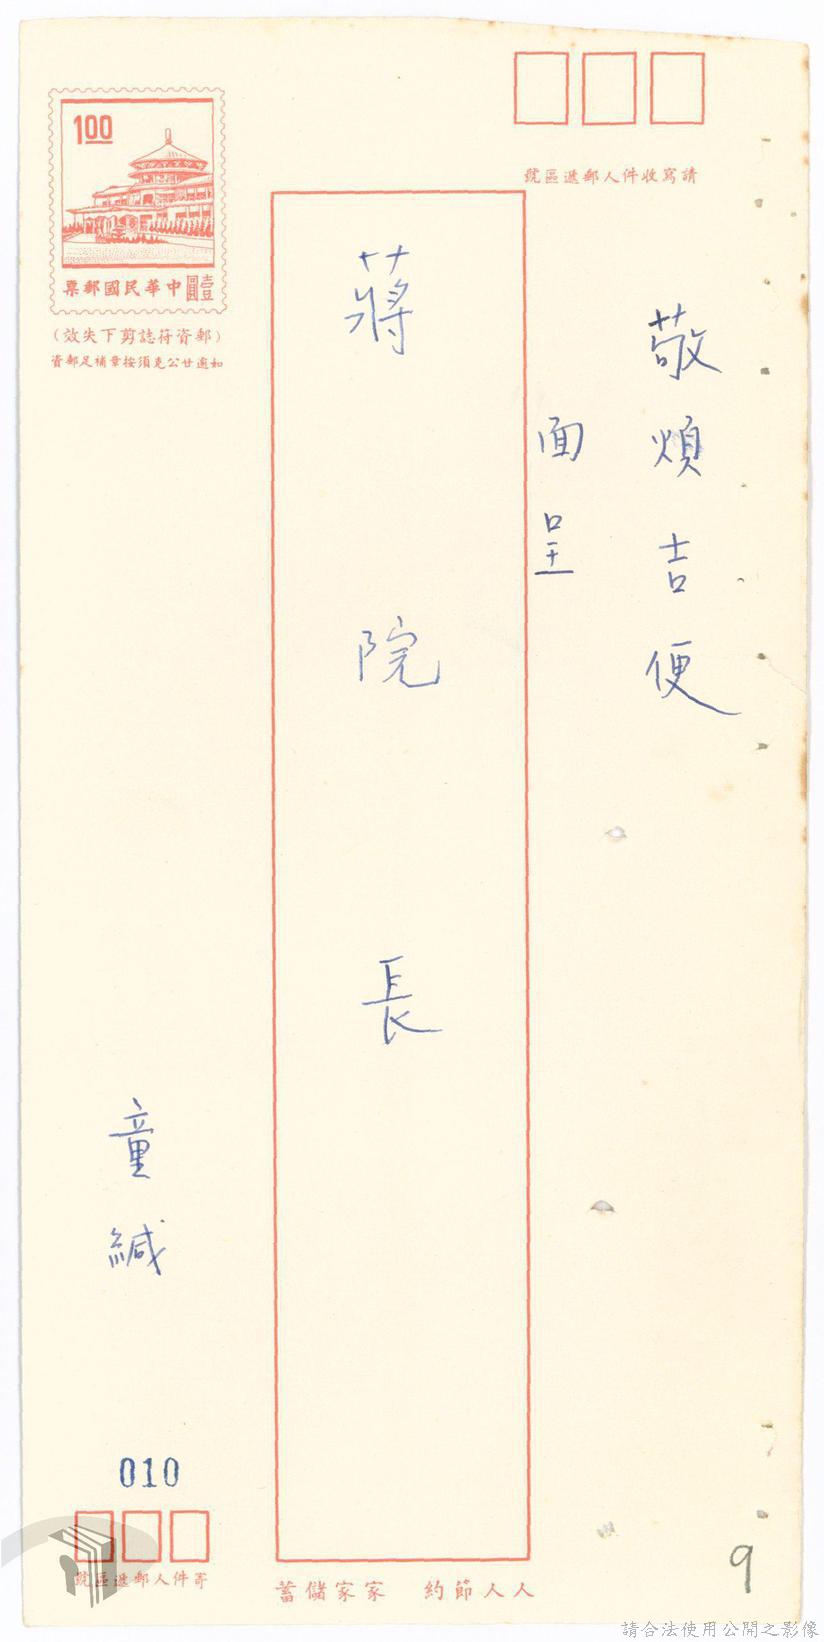 請寫收件人郵遞區號
敬煩吉便
面呈
蔣院長
童緘
1.00
壹圓中華民國郵票
(郵資符誌剪下失效)
如逾廿公克須按章補足郵資
010
寄件人郵遞區號
人人節約 家家儲蓄
9
請合法使用公開之影像